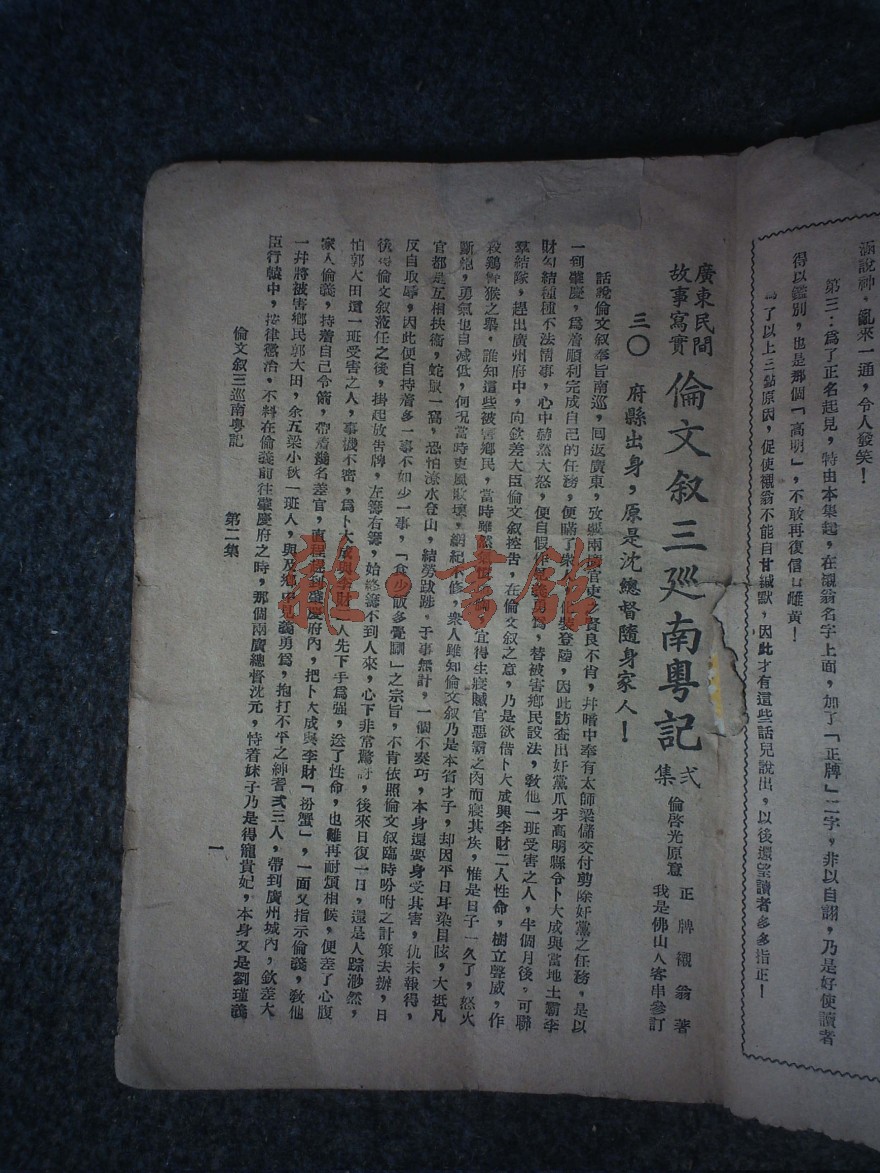 涵說神，亂來一通，令人發笑！
第三：爲了正名起見，特由本集起，在襯翁名字上面，加了「正牌」二字，非以自詡，乃是好使讀者
得以鑑別，也是那個「高明」，不敢再復信口雌黃！
爲了以上三點原因，促使襯翁不能自甘緘默，因此才有這些話兒說出，以後還望讀者多多指正！
廣東民間
故事寫實
倫文叙三巡南粵記
弍集
倫啓光原意
正牌襯翁著
我是佛山人客串參訂
三〇 府縣出身，原是沈總督隨身家人！
話說倫文叙奉旨南巡，回返廣東，攷察兩廣官吏之賢良不肯，幷暗中奉有太師梁儲交付剪除奸黨之任務，是以
一到肇慶，爲着順利完成自己的任務，便瞞了衆人，裝登陸，因此訪查出奸黨爪牙高明縣令卜大成與當地土霸李
財勾結種種不法情事，心中赫然大怒，便自假作見義勇爲，替被害鄉民設法，敎他一班受害之人，半個月後，可聯
羣結隊，趕出廣州府中，向欽差大臣倫文叙控告，在倫文叙之意，乃是欲借卜大成與李財二人性命，樹立聲威，作
殺鷄警猴之舉，誰知這些被害鄉民，當時雖然憤胸，宜得生寢贓官惡霸之肉而寢其皮，惟是日子一久了，怒火
斷熄，勇氣也自減低，何况當時吏風敗壞，綱紀不修，衆人雖知倫文叙乃是本省才子，却因平日耳染目眩，大抵凡
官都是互相扶衛，蛇鼠一窩，恐怕潦水登山，結勞跋跡，于事無計，一個不奏巧，本身還要身受其害，仇未報得，
反自取辱，因此便自持着多一事不如少一事，「食少啖多覺瞓」之宗旨，不肯依照倫文叙臨時吩咐之計策去辦，日
後倫文叙蒞任之後，掛起放告牌，左籌右籌，始終籌不到人來，心下非常驚訝，後來日復一日，還是人踪渺然，
怕郭大田這一班受害之人，事機不密，爲卜大成與李財二人先下手爲强，送了性命，也難再耐煩相候，便差了心腹
家人倫義，持着自己令箭，帶着幾名差官，直程趕到肇慶府內，把卜大成與李財「扮蟹」，一面又指示倫義，敎他
一幷將被害鄉民郭大田，余五梁小秋一班人，與及鄉中見義勇爲，抱打不平之紳耆弍三人，帶到廣州城內，欽差大
臣行轅中，按律懲治，不料在倫義前往肇慶府之時，那個兩廣總督沈元，恃着妹子乃是得寵貴妃，本身又是劉瑾義
倫文叙三巡南粵記 第二集
一
雜·書館